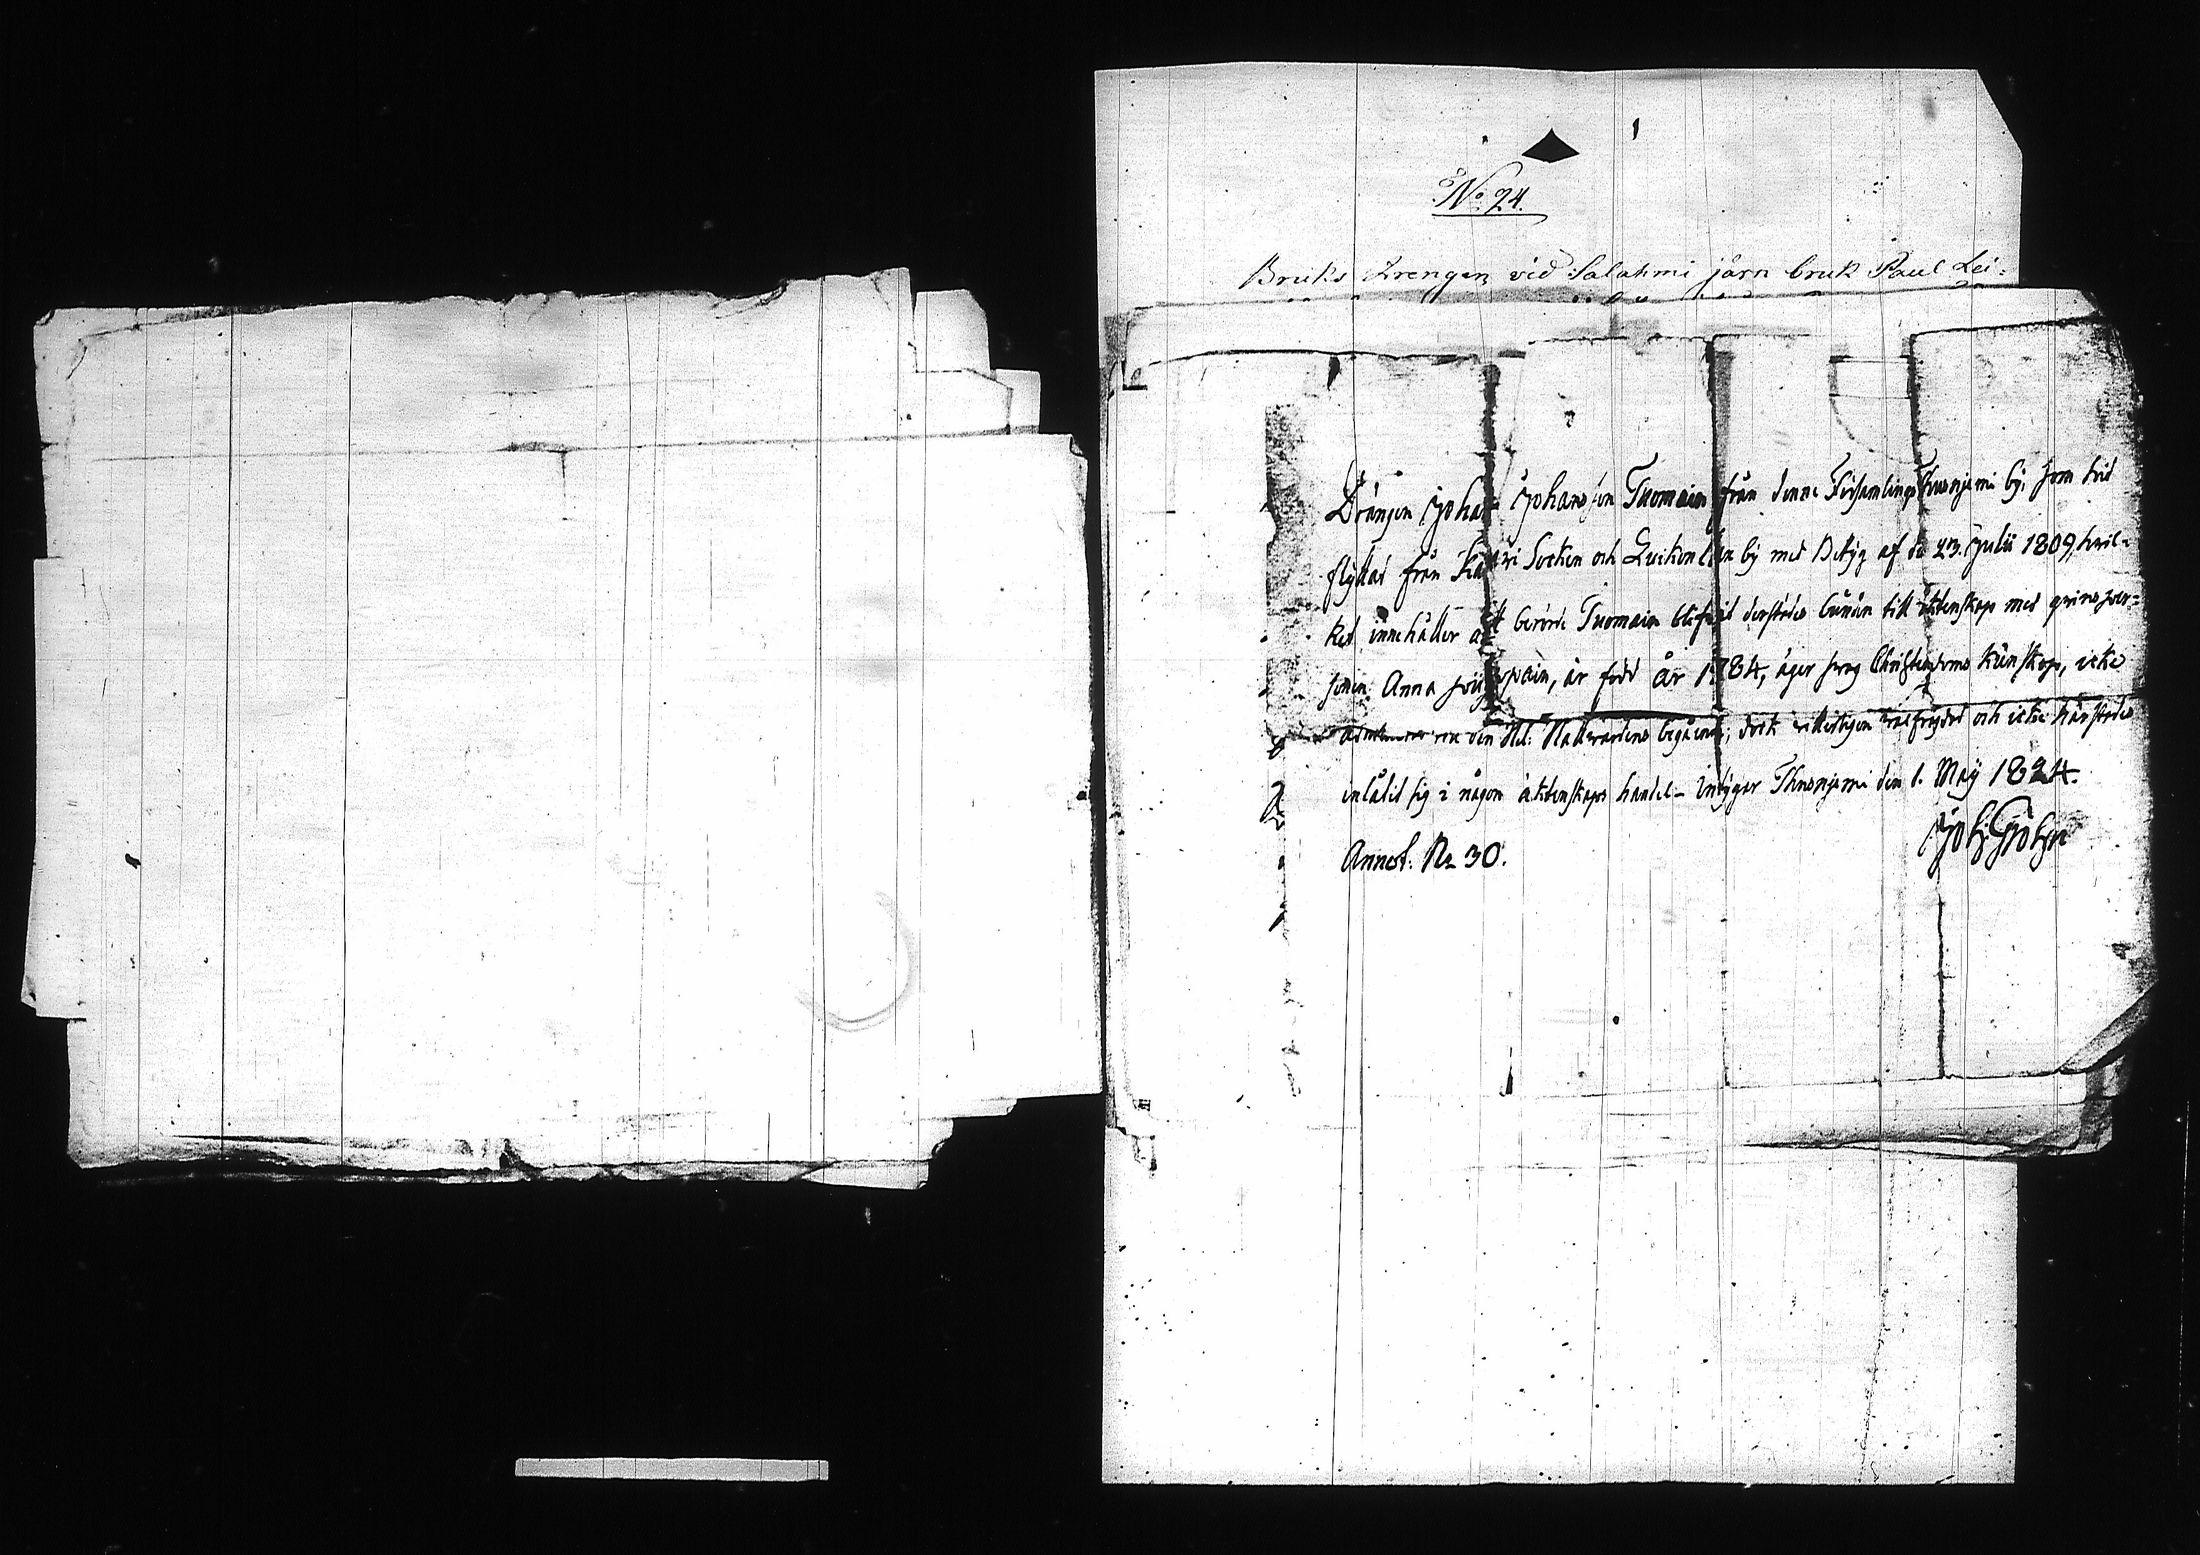 No 24.
Bruks Drengen vid Salahmi järn bruk Paul Lei-
Drängen Johan Johansson Tuomain från denne Församlings Thusnjemi by, som hid
flyttat från Ka vi Socken och by med Betyg af de 23. Julii 1809, hvil-
ket innehåller att berörde Tuomain blifvit derstädes buden till äktenskap med qvinsper-
sonen Anna är född år 1784, äger svag Christendoms kunskap, icke
den Hel: Nattvardens begående, dock och icke härstädes
inlåtit sig i någon äktenskaps handel - Intygar Thusnjemi den 1. Maÿ 1824.
Joh: Grohn
Annot: No 30.